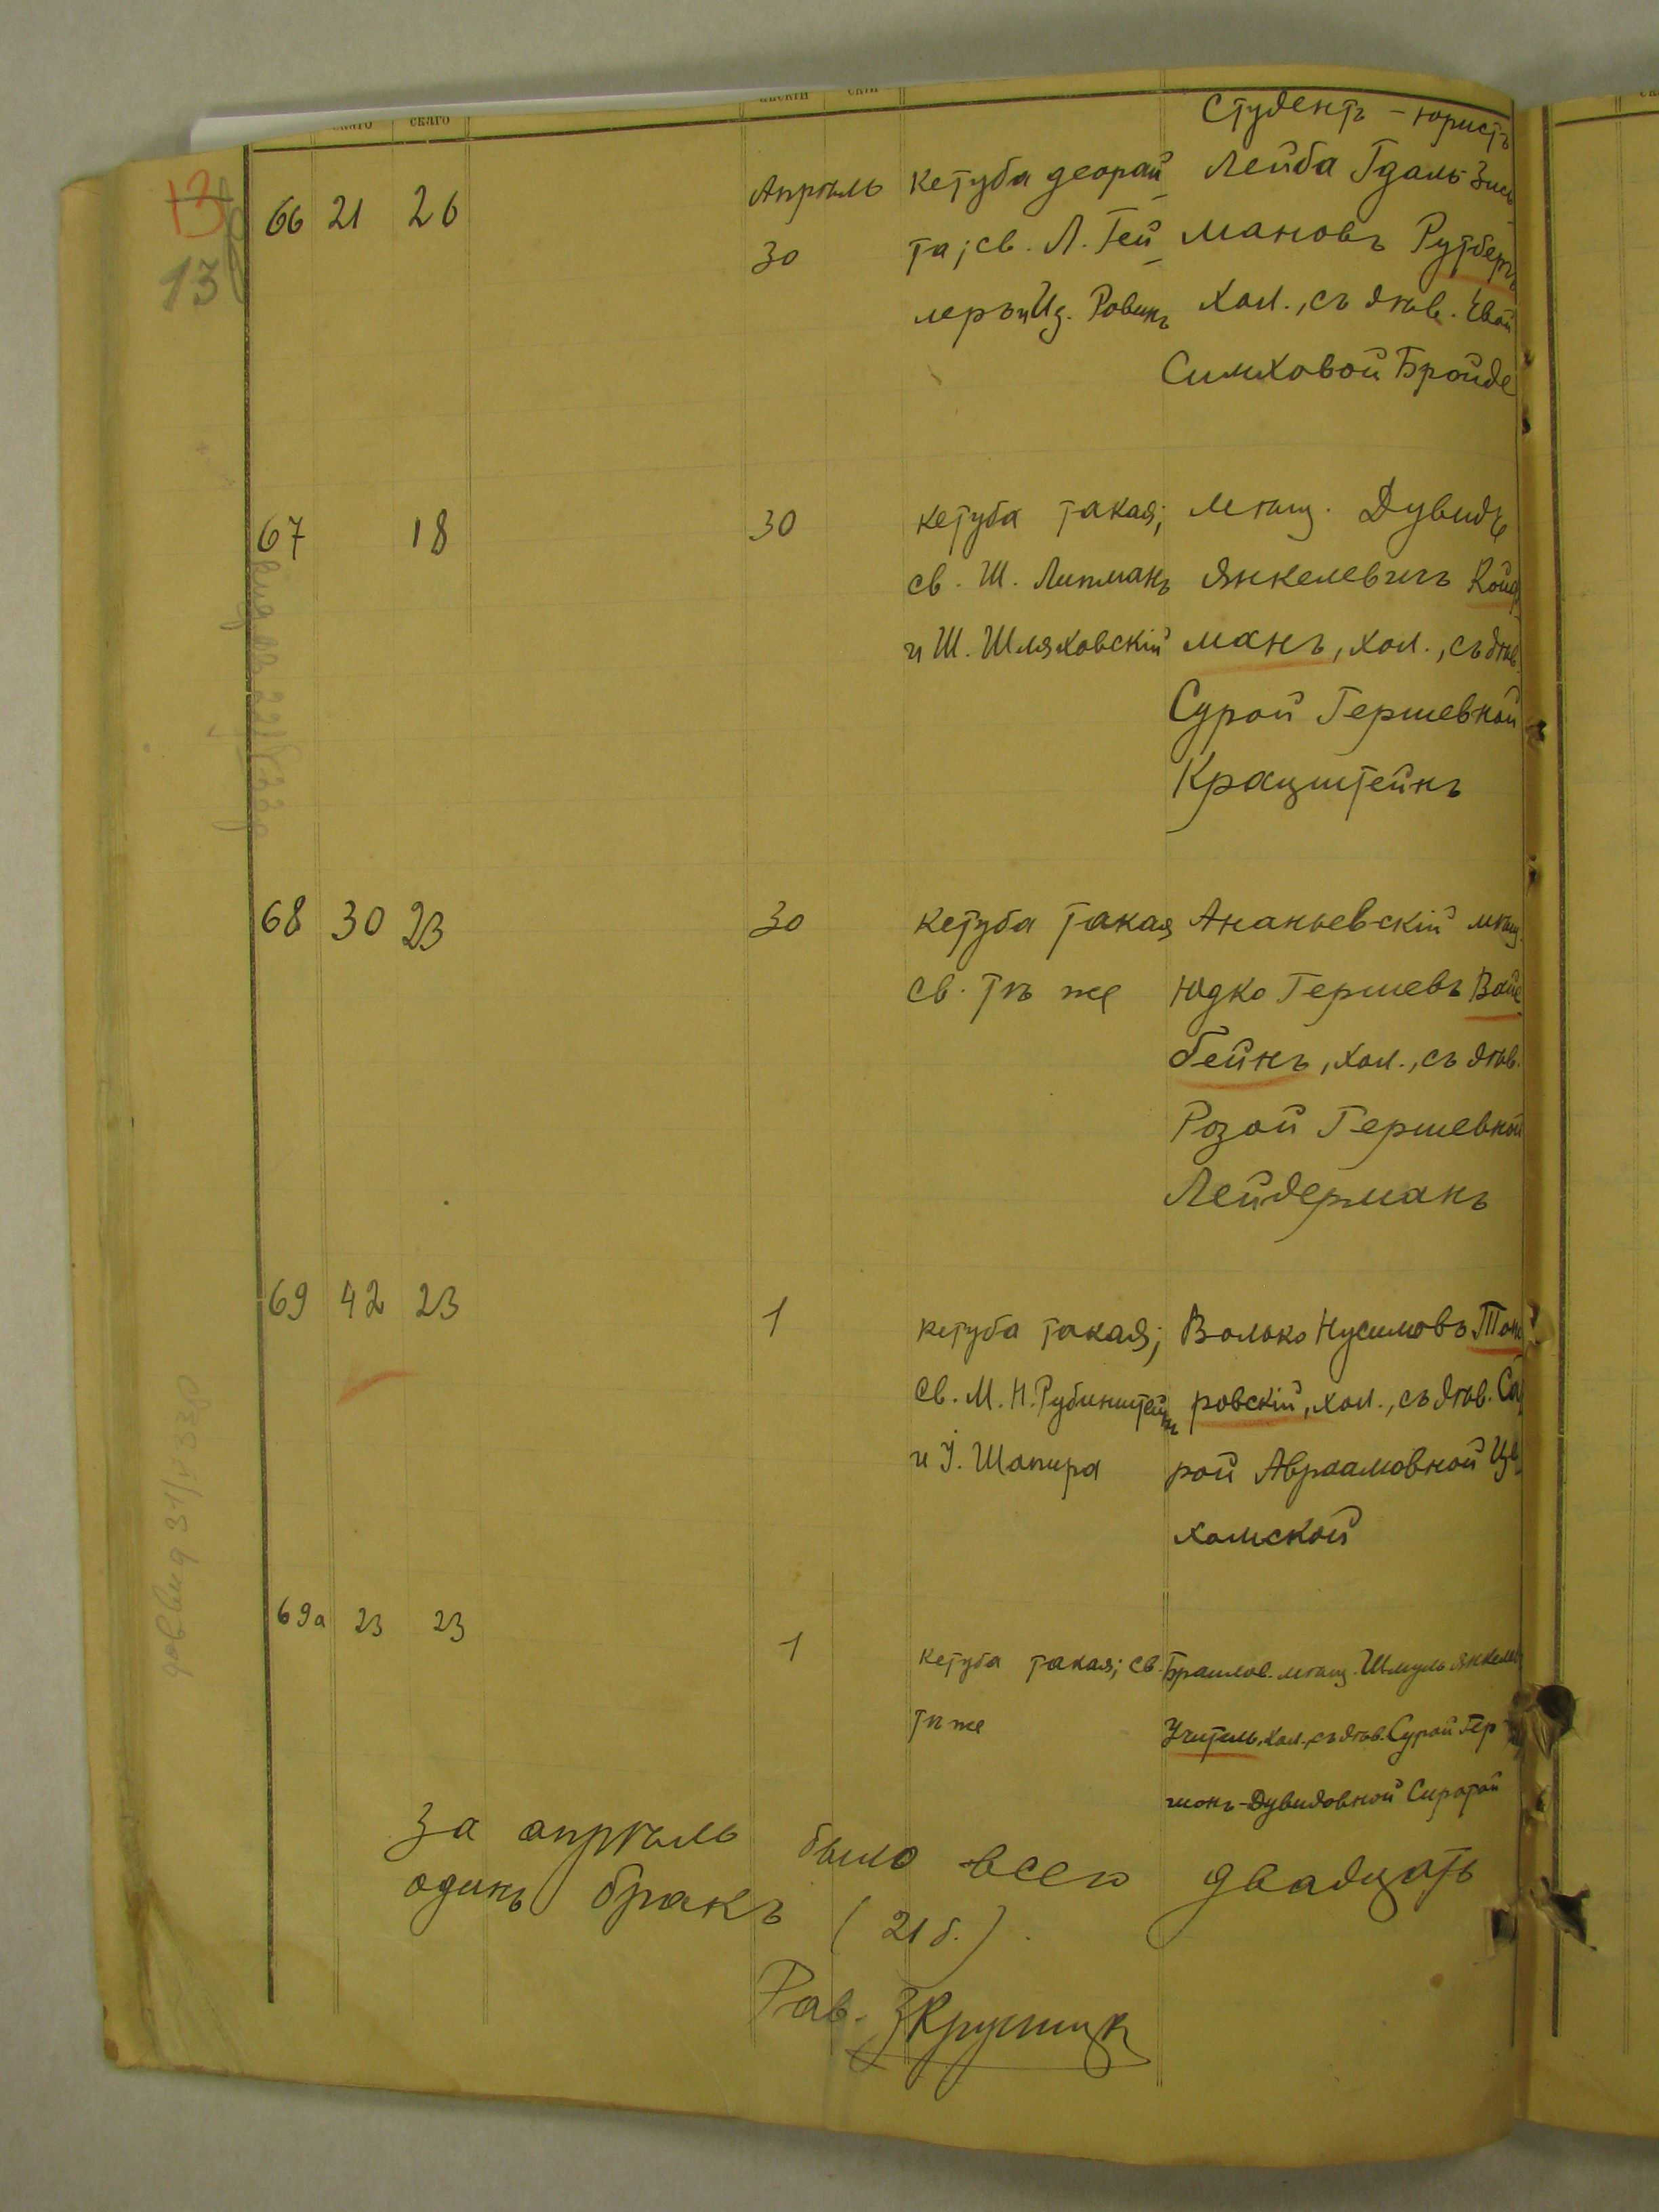 скаго
скаго
13
13
66 21 26 Апрѣль кетуба деорай Студентъ - юристъ
30 та; св. Л. Гей Лейба Гдаль-Зись
леръ и Из. Ровинъ мановъ Рутберъ
хол., съ дѣв. Евой
Симховой Бройде
67 18 30 кетуба такая; Мѣщ. Дувидъ
св. Ш. Липманъ Янкелевичъ Кой
и Ш. Шляховскій манъ, хол., съ дѣв.
Сурой Гершевной
Крацштейнъ
68 30 23 30 кетуба такая Ананьевскій мѣщ.
св. тѣ же Юдко Гершевъ Вай
бейнъ, хол., съ дѣв.
Розой Гершевной
Лейдерманъ
69 42 23 1 кетуба такая; Волько Нусимовъ
св. М. Н. Рубинштейнъ ровскій, хол., съ дѣв. Са
и І. Шапира рой Авраамовной
хомской
69а 23 23 1 кетуба такая; св. Браилов. мѣщ. Шмуль Янкелев
тѣ же Учитель, хол., съ дѣв. Сурой Гер
шонъ-Дувидовной Сиротой
За апрѣль было всего двадцать
одинъ бракъ (21 б.).
Рав.